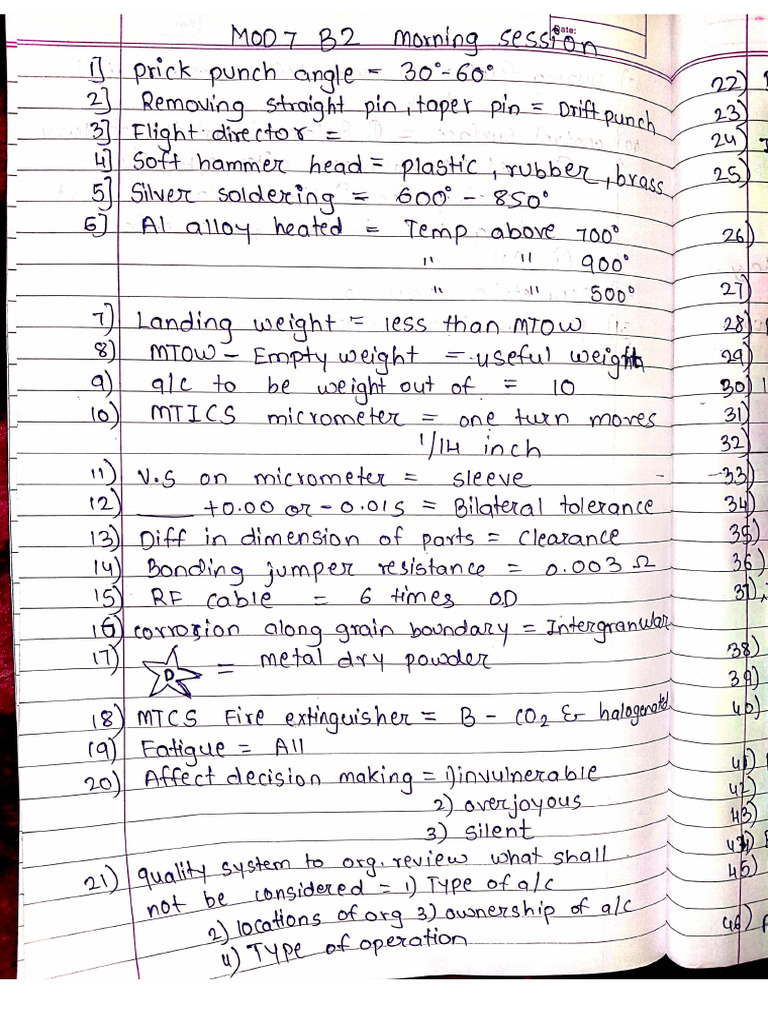 Date:
MOD 7 B2 morning session
1] prick punch angle = 30°-60°
2] Removing straight pin, taper pin = Drift punch
3] Flight director =
4] Soft hammer head = plastic, rubber, brass
5] Silver soldering = 600° - 850°
6] Al alloy heated = Temp above 700°
" " 900°
" " 500°
7) Landing weight = less than MTOW
8) MTOW - Empty weight = useful weight
9) a/c to be weight out of = 10
10) MTICS micrometer = one turn moves
1/14 inch
11) V.S on micrometer = sleeve
12) ___ +0.00 or - 0.015 = Bilateral tolerance
13) Diff in dimension of parts = clearance
14) Bonding jumper resistance = 0.003 Ω
15) RF cable = 6 times OD
16) corrosion along grain boundary = Intergranular
17) D = metal dry powder
18) MTCS Fire extinguisher = B - CO2 & halogenated
19) Fatigue = All
20) Affect decision making = 1) invulnerable
2) overjoyous
3) silent
21) quality system to org. review what shall
not be considered = 1) Type of a/c
2) locations of org 3) ownership of a/c
4) Type of operation
22)
23)
24)
25)
26)
27)
28)
29)
30)
31)
32)
33)
34)
35)
36)
37)
38)
39)
40)
41)
42)
43)
44)
45)
46)